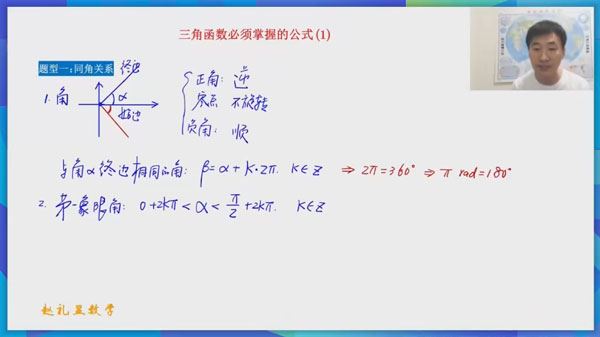 三角函数必须掌握的公式(1)
题型一:同角关系
终边
1. 角
α
始边
正角: 逆
零点 不旋转
负角: 顺
与角α终边相同的角: β=α+K·2π. K∈Z ⇒ 2π=360° ⇒ π rad=180°
2. 第一象限角: 0+2kπ<α<π/2+2kπ. K∈Z
赵礼显数学